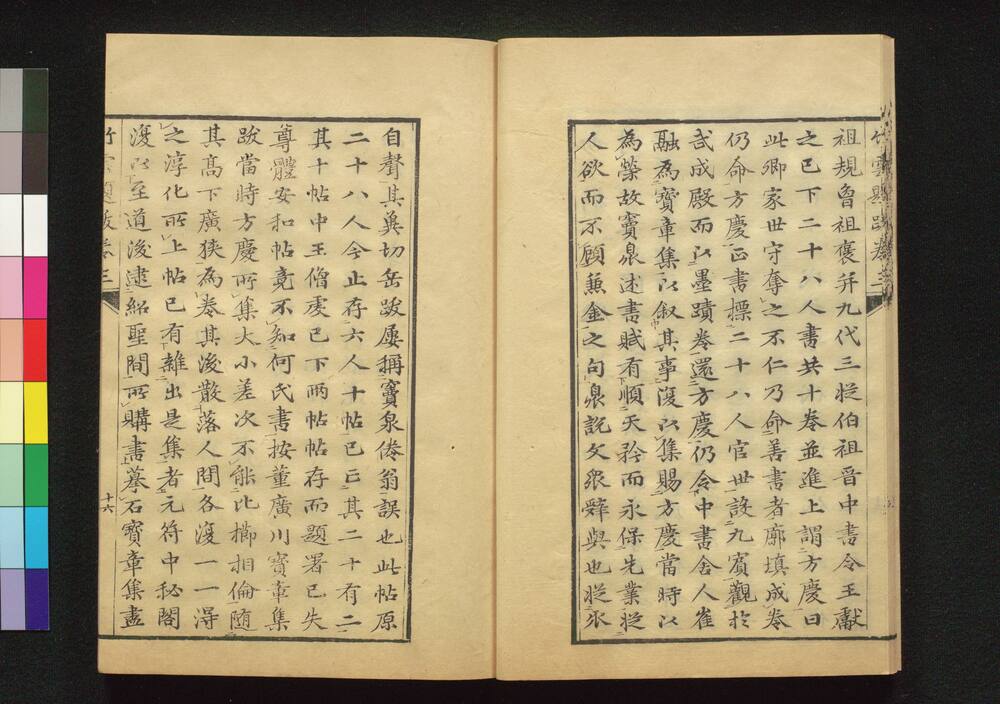 祖規曾祖褒幷九代三從伯祖晉中書令王獻
之已下二十八人書共十卷並進上謂方慶曰
此卿家世守奪之不仁乃命善書者廓填成卷
仍命方慶正書標二十八人官世設九賓觀於
武成殿而以墨蹟卷還方慶仍令中書舍人崔
融為寶章集以叙其事復以集賜方慶當時以
為榮故竇臮述書賦有順天矜而永保先業從
人欲而不顧兼金之句臮說文衆辭與也從㐺
自聲其冀切岳跋屢稱竇泉倦翁誤也此帖原
二十八人今止存六人十帖已亡其二十有二
其十帖中王僧虔已下兩帖帖存而題署已失
尊體安和帖竟不知何氏書按董廣川寶章集
跋當時方慶所集大小差次不能比擲相倫隨
其高下廣狹為卷其後散落人間各復一一得
之淳化所上帖已有雜出是集者元符中秘閣
復以至道後逮紹聖間所購書摹石寶章集盡
竹雲題跋卷三
十六